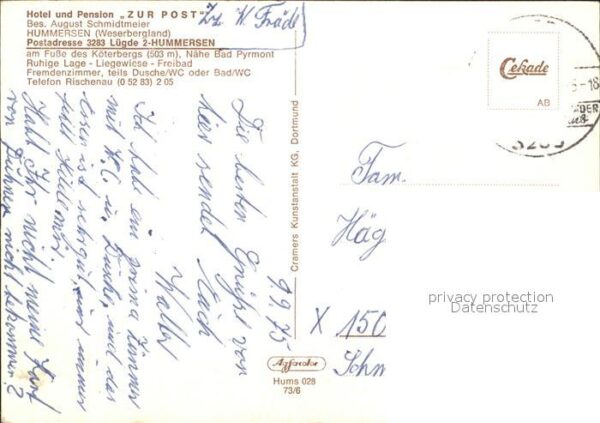 Hotel und Pension „ZUR POST"
Bes. August Schmidtmeier
HUMMERSEN (Weserbergland)
Postadresse 3283 Lügde 2-HUMMERSEN
am Fuße des Köterbergs (503 m), Nähe Bad Pyrmont
Ruhige Lage - Liegewiese - Freibad
Fremdenzimmer, teils Dusche/WC oder Bad/WC
Telefon Rischenau (0 52 83) 2 05
Zz. W. Fräde
9.9.75
Die besten Grüße von
hier sendet Euch
Walter
Ich habe ein prima Zimmer
mit W.C. u. Dusche, und das
Essen ist sehr gut, nur immer
fehlt
Habt Ihr nicht meine Karte
von nicht bekommen?
Cramers Kunstanstalt KG, Dortmund
Cekade
AB
-18
3283
Fam.
Häg
X 150
Schn
privacy protection
Datenschutz
Agfacolor
Hums 028
73/6